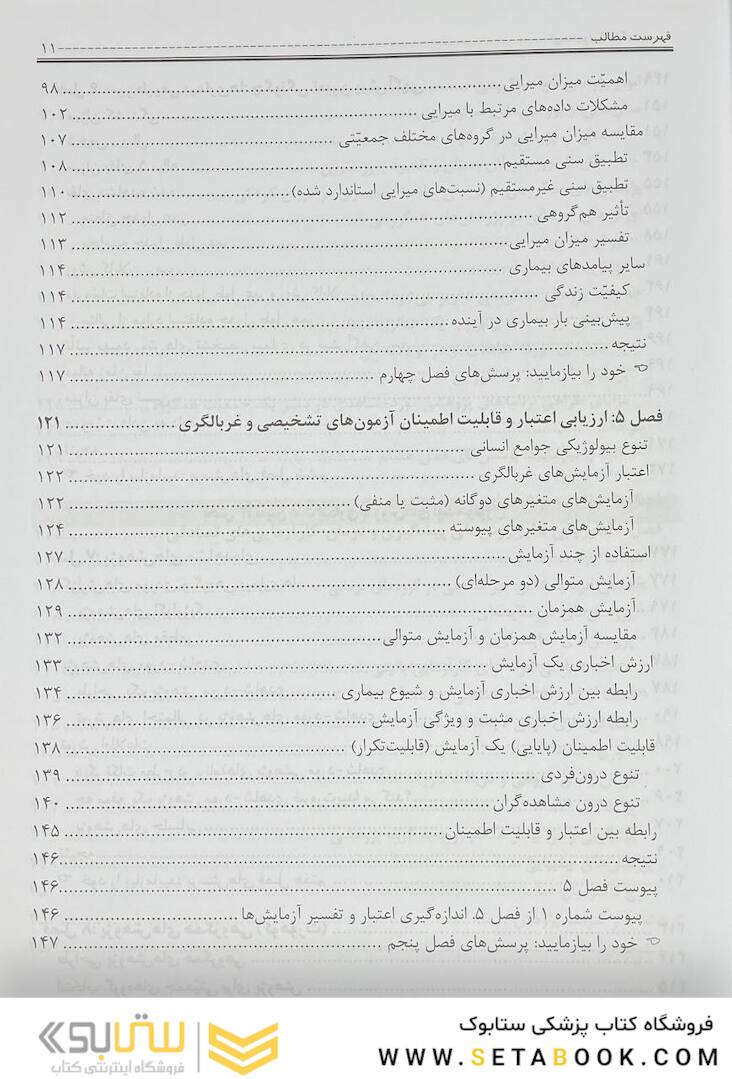 فهرست مطالب ۱۱
اهمیّت میزان میرایی ۹۸
مشکلات داده‌های مرتبط با میرایی ۱۰۲
مقایسه میزان میرایی در گروه‌های مختلف جمعیّتی ۱۰۷
تطبیق سنی مستقیم ۱۰۸
تطبیق سنی غیرمستقیم (نسبت‌های میرایی استاندارد شده) ۱۱۰
تأثیر هم‌گروهی ۱۱۲
تفسیر میزان میرایی ۱۱۳
سایر پیامدهای بیماری ۱۱۴
کیفیّت زندگی ۱۱۴
پیش‌بینی بار بیماری در آینده ۱۱۴
نتیجه ۱۱۷
خود را بیازمایید: پرسش‌های فصل چهارم ۱۱۷
فصل ۵: ارزیابی اعتبار و قابلیت اطمینان آزمون‌های تشخیصی و غربالگری ۱۲۱
تنوع بیولوژیکی جوامع انسانی ۱۲۱
اعتبار آزمایش‌های غربالگری ۱۲۲
آزمایش‌های متغیرهای دوگانه (مثبت یا منفی) ۱۲۲
آزمایش‌های متغیرهای پیوسته ۱۲۴
استفاده از چند آزمایش ۱۲۷
آزمایش متوالی (دو مرحله‌ای) ۱۲۸
آزمایش همزمان ۱۲۹
مقایسه آزمایش همزمان و آزمایش متوالی ۱۳۲
ارزش اخباری یک آزمایش ۱۳۳
رابطه بین ارزش اخباری آزمایش و شیوع بیماری ۱۳۴
رابطه ارزش اخباری مثبت و ویژگی آزمایش ۱۳۶
قابلیت اطمینان (پایایی) یک آزمایش (قابلیت‌تکرار) ۱۳۸
تنوع درون‌فردی ۱۳۹
تنوع درون مشاهده‌گران ۱۴۰
رابطه بین اعتبار و قابلیت اطمینان ۱۴۵
نتیجه ۱۴۶
پیوست فصل ۵ ۱۴۶
پیوست شماره ۱ از فصل ۵. اندازه‌گیری اعتبار و تفسیر آزمایش‌ها ۱۴۶
خود را بیازمایید: پرسش‌های فصل پنجم ۱۴۷
فروشگاه کتاب پزشکی ستابوک
WWW.SETABOOK.COM
ستابوک
فروشگاه اینترنتی کتاب